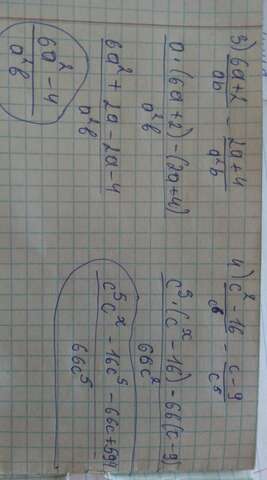 3) 6a+2 / ab - 2a+4 / a²b
a·(6a+2)-(2a+4) / a²b
6a²+2a-2a-4 / a²b
6a²-4 / a²b
4) c² - 16 - c-9 / c⁵
c⁵·(cˣ-16)-66(c-9) / 66c²
c⁵cˣ - 16c⁵ - 66c+594 / 66c⁵